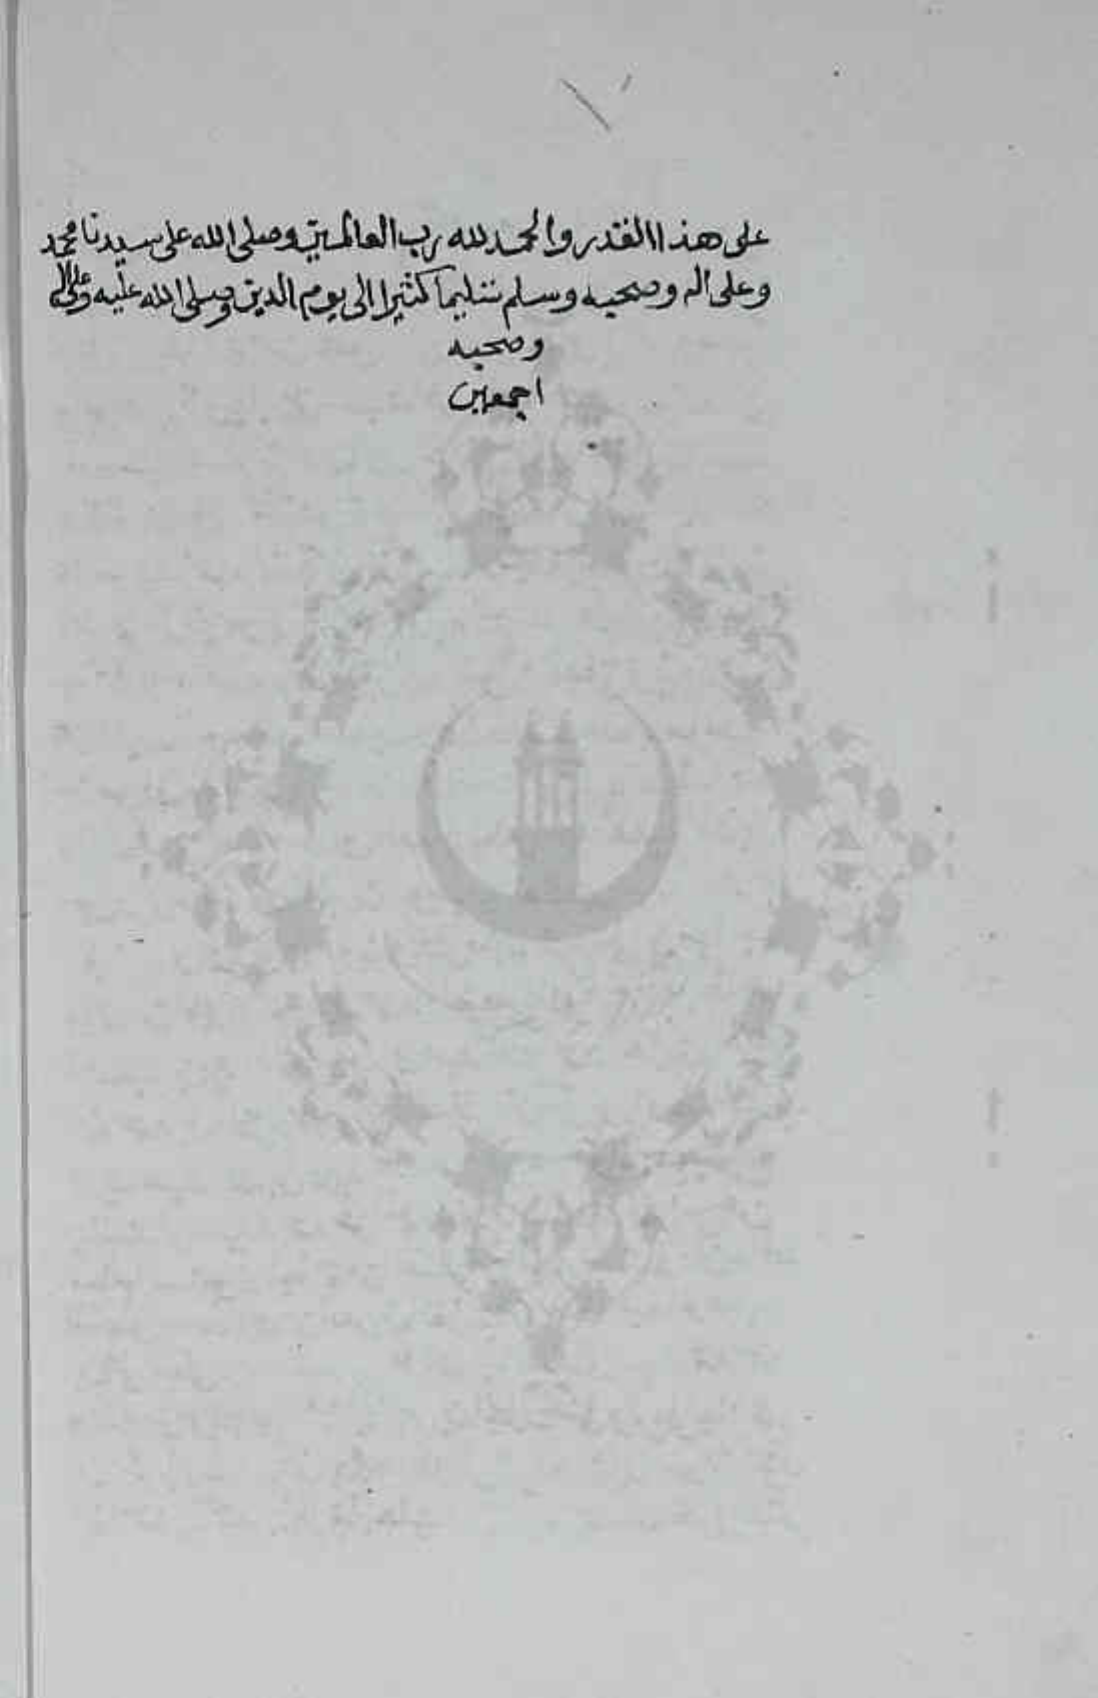 على هذا القدر والحمد لله رب العالمين وصلى الله على سيدنا محمد
وعلى اله وصحبه وسلم تسليما كثيرا الى يوم الدين وصلى الله عليه وعلى اله
وصحبه
اجمعين